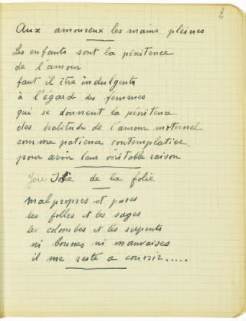 2
Aux amoureux les mains pleines
Les enfants sont la pénitence
de l'amour
faut il être indulgents
à l'égard des femmes
qui se donnent la pénitence
des de l'amour maternel
comme patience contemplative
pour avoir leur véritable raison
de la folie
malpropres et pures
les folles et les sages
les colombes et les serpents
ni bonnes ni mauvaises
il me reste à courir.....